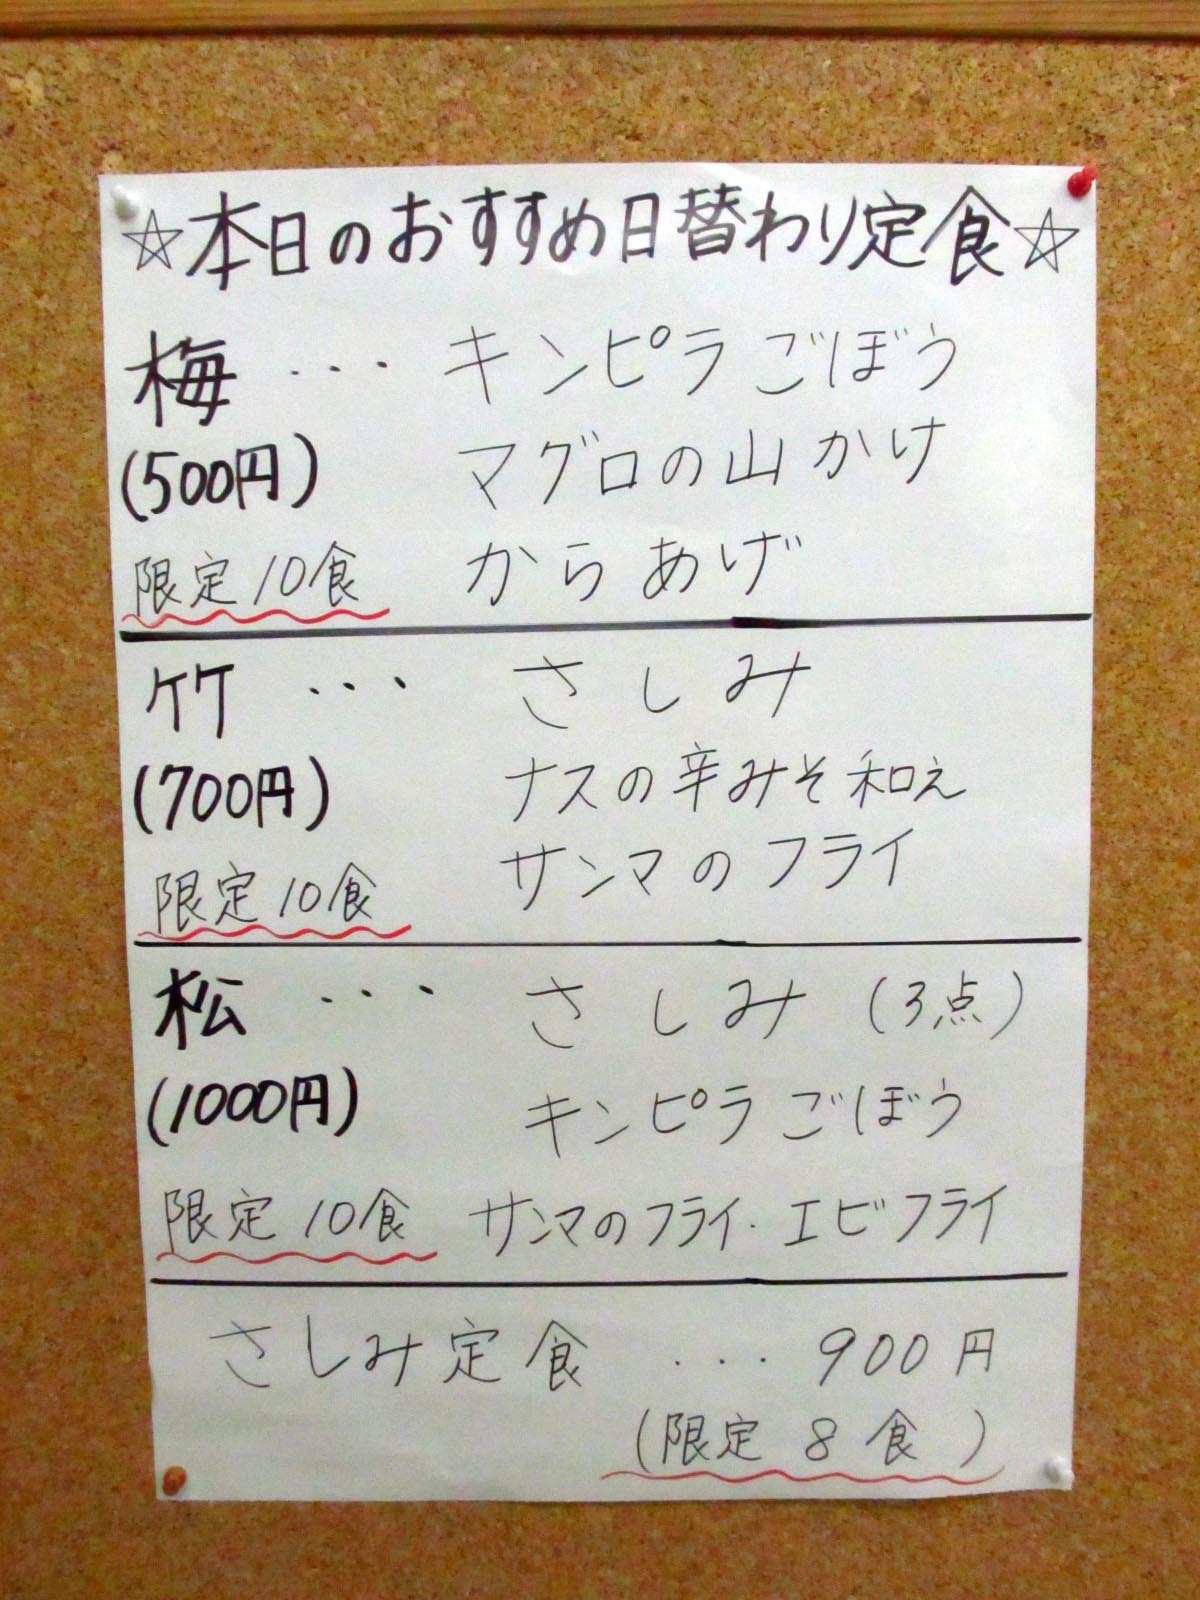 ☆本日のおすすめ日替わり定食☆
梅 ・・・ キンピラごぼう
(500円) マグロの山かけ
限定10食 からあげ
竹 ・・・ さしみ
(700円) ナスの辛みそ和え
限定10食 サンマのフライ
松 ・・・ さしみ (3点)
(1000円) キンピラごぼう
限定10食 サンマのフライ・エビフライ
さしみ定食 ・・・ 900円
(限定 8食)